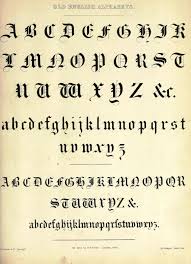 OLD ENGLISH ALPHABETS.
A B C D E F G H I K
L M N O P Q R S T
U W X Y Z &c.
a b c d e f g h i j k l m n o p q r s t
u v w x y z
A B C D E F G H I K L M N O P Q R
S T U V W X Y Z &
a b c d e f g h i j k l m n o p q r s t u v w x y z.